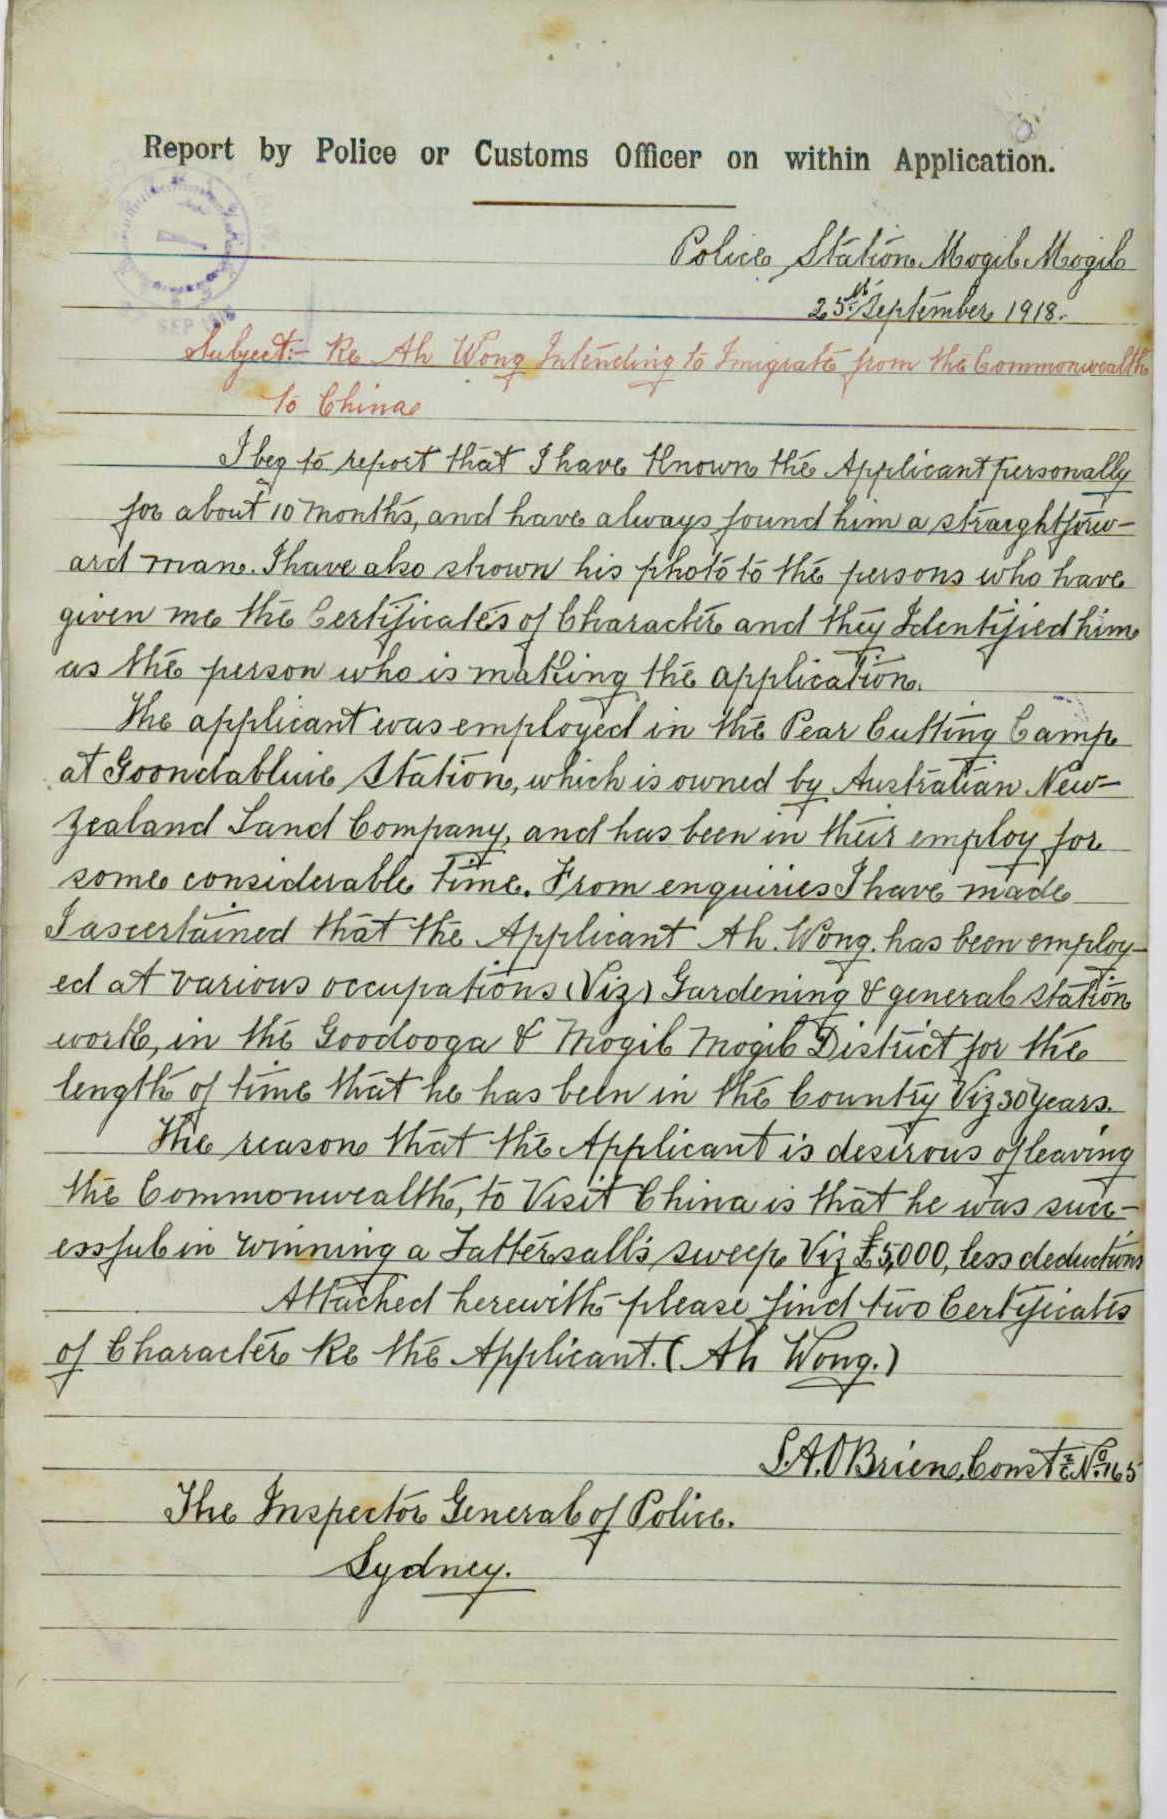 Report by Police or Customs Officer on within Application.
Police Station Mogil Mogil
25th September 1918.
SEP
Subject:- Re Ah Wong Intending to Imigrate from the Commonwealth
to China
I beg to report that I have Known the Applicant personally
for about 10 Months, and have always found him a straightforw-
ard man. I have also shown his photo to the persons who have
given me the Certificates of Character and they Identified him
as the person who is making the application.
The applicant was employed in the Pear Cutting Camp
at Goondabluie Station, which is owned by Australian New-
Zealand Land Company, and has been in their employ for
some considerable time. From enquiries I have made
I ascertained that the Applicant Ah. Wong. has been employ-
ed at various occupations (Viz) Gardening & general station
work, in the Goodooga & Mogil Mogil District for the
length of time that he has been in the Country Viz 30 Years.
The reason that the Applicant is desirous of leaving
the Commonwealth, to Visit China is that he was succ-
essful in winning a Tattersall's sweep Viz £5,000, less deductions
Attached herewith please find two Certificates
of Character Re the Applicant. (Ah Wong.)
S.A. O'Brien, Const 1/c No 165
The Inspector General of Police.
Sydney.